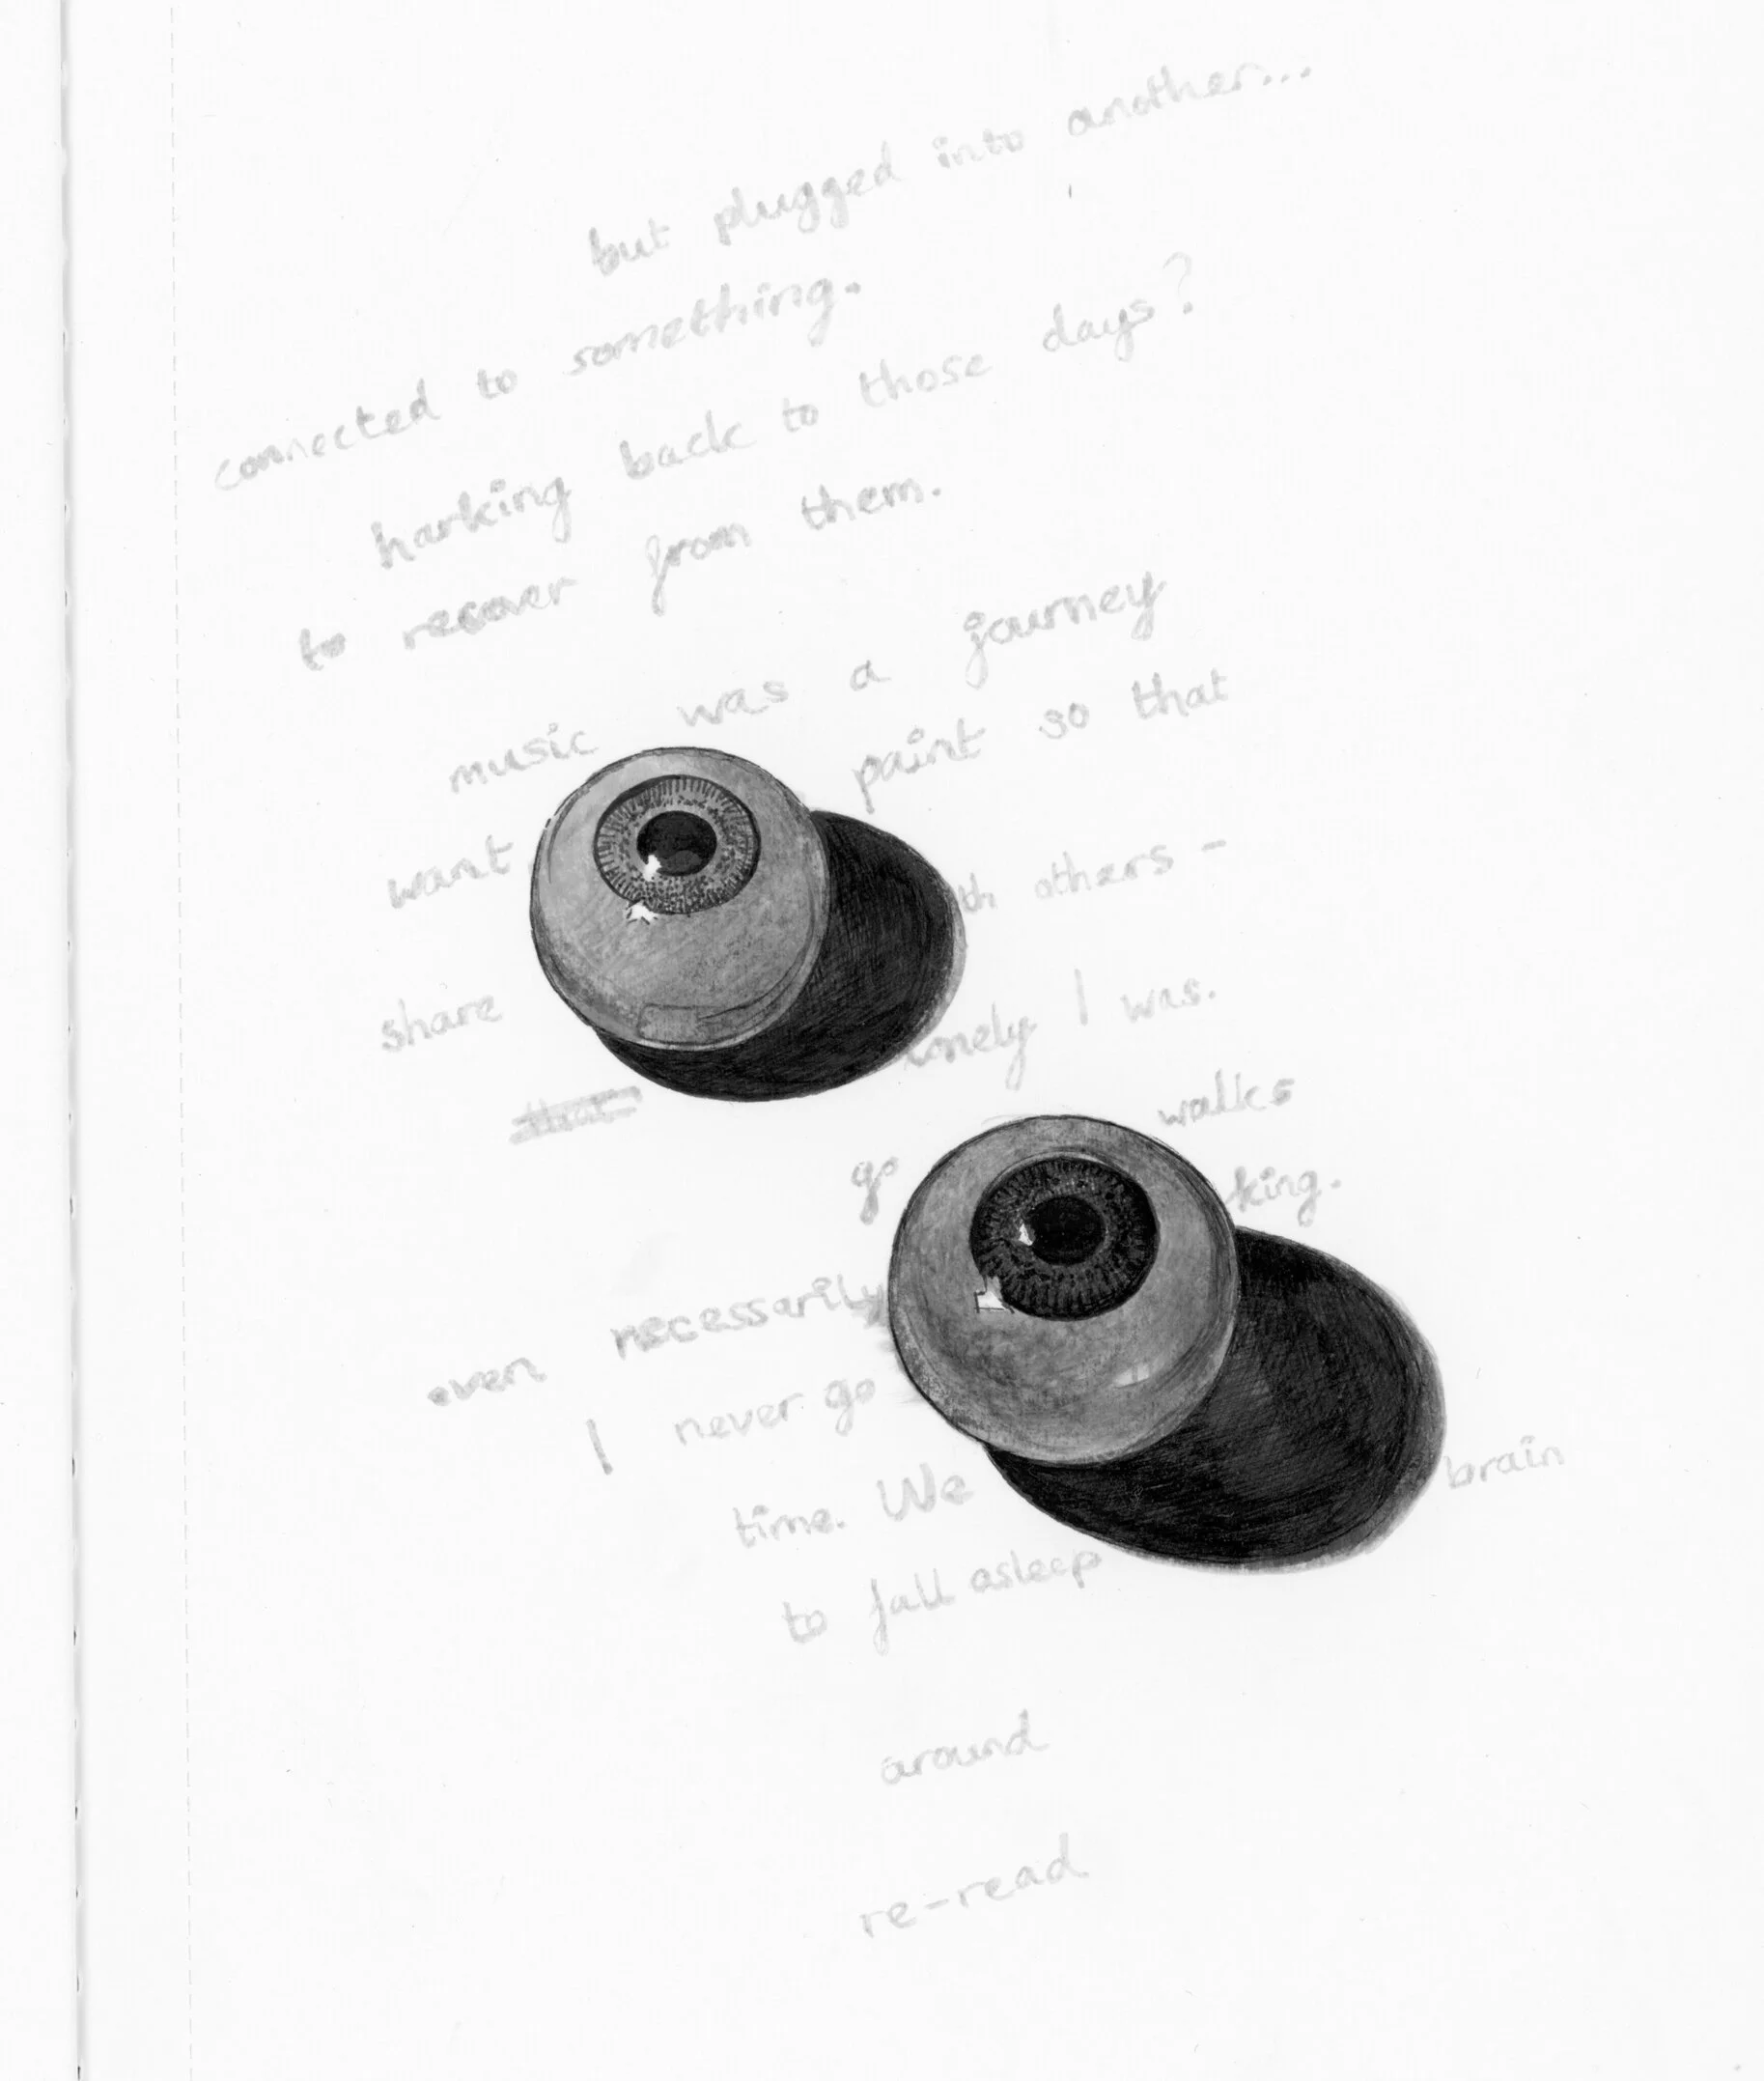 but plugged into another...
connected to something.
harking back to those days?
to recover from them.
music was a journey
want paint so that
share th others -
that lonely I was.
go walks
king.
even necessarily
I never go
time. We brain
to fall asleep
around
re-read